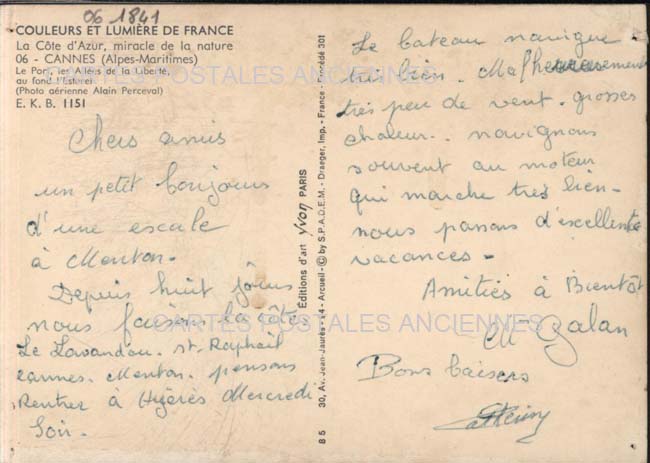 06 1841
COULEURS ET LUMIÈRE DE FRANCE
La Côte d'Azur, miracle de la nature
06 - CANNES (Alpes-Maritimes)
Le Port, les Allées de la Liberté,
au fond l'Esterel
(Photo aérienne Alain Perceval)
E. K. B. 1151
CARTES POSTALES ANCIENNES
Chers amis
un petit bonjour
d'une escale
à Menton.
Depuis huit jours
nous faisons la côte
Le Lavandou. St. Raphaël
Cannes. Menton. pensons
Rentrer à Hyères Mercredi
Soir.
Éditions d'art Yvon PARIS
30, Av. Jean-Jaurès - 14 - Arcueil - © by S.P.A.D.E.M. - Draeger, Imp. - France - Procédé 301
B 5
Le bateau navigue
très bien. Malheureusement
très peu de vent. grosses
chaleur. navignons
souvent au moteur
qui marche très bien -
nous passons d'excellente
vacances -
Amitiés à Bientôt
CARTES POSTALES ANCIENNES
Galan
Bons baisers